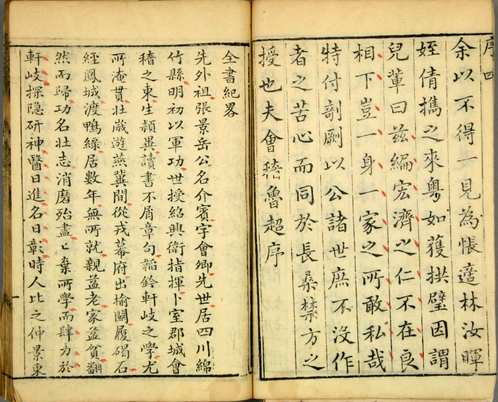 序四
余以不得一見為悵適林汝暉
姪倩攜之來粤如獲拱璧因謂
兒輩曰茲編宏濟之仁不在良
相下豈一身一家之所敢私哉
特付剞劂以公諸世庶不沒作
者之苦心而同於長桑禁方之
授也夫會稽魯超序
全書紀畧
先外祖張景岳公名介賓字會卿先世居四川綿
竹縣明初以軍功世授紹興衛指揮卜室郡城會
稽之東生頴異讀書不屑章句韜鈐軒岐之學尤
所淹貫壯歲遊燕冀間從戎幕府出榆關履碣石
經鳳城渡鴨綠居數年無所就親益老家益貧翻
然而歸功名壯志消磨殆盡〻棄所學而肆力於
軒岐探隱研神醫日進名日彰時人比之仲景東